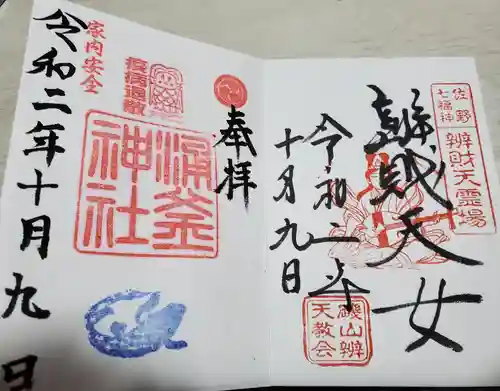 佐野七福神
辨財天霊場
辨財天女
令和二年
十月九日
磯山辨天教会
奉拝
疫病退散
涌釜神社
家内安全
令和二年十月九日